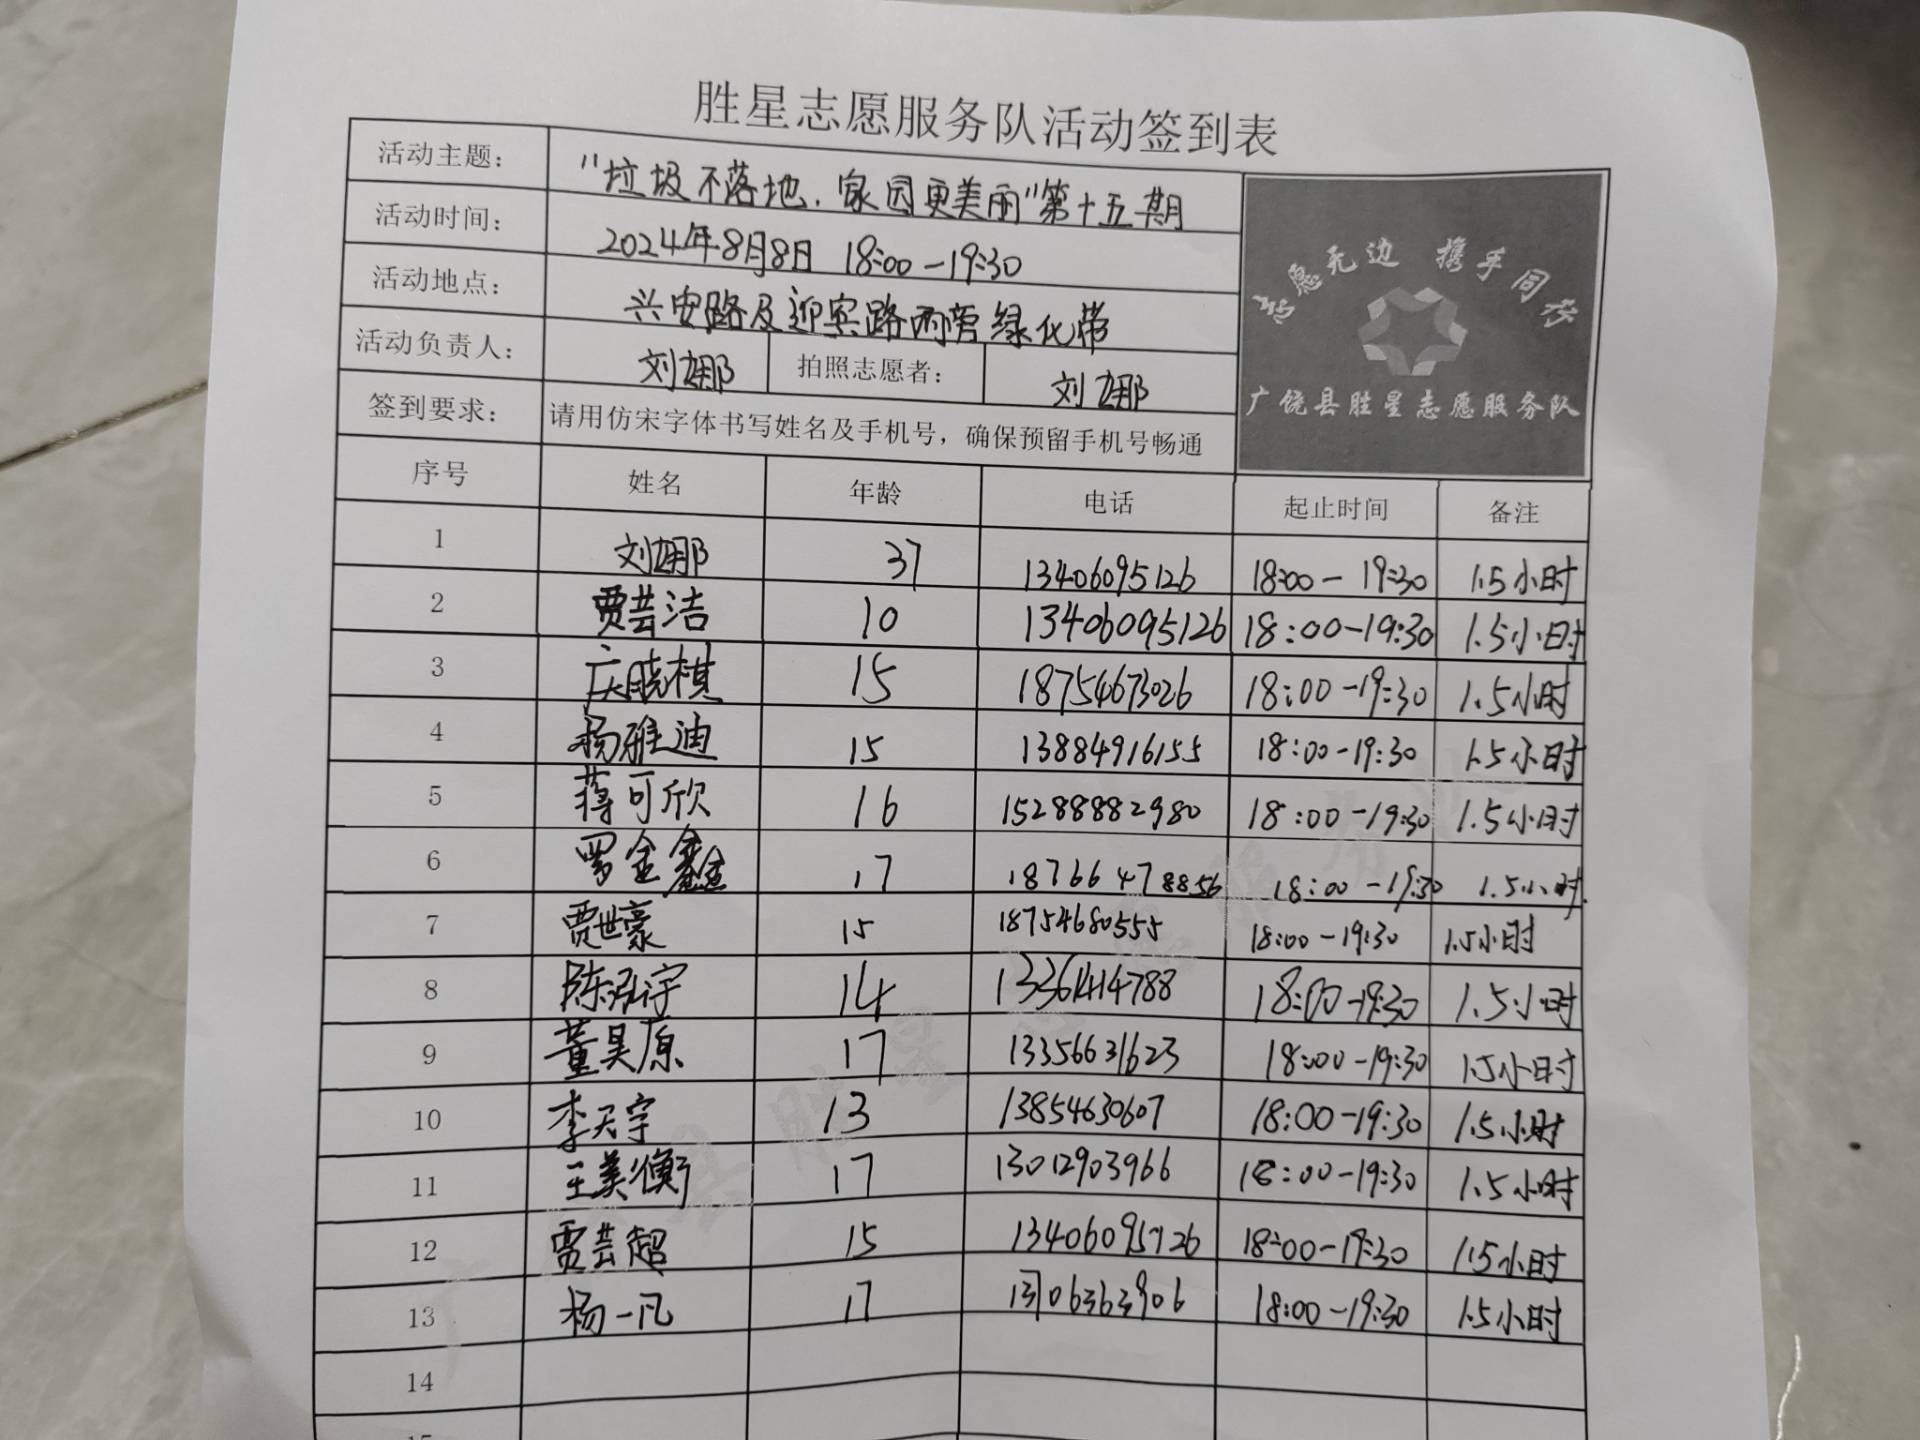 胜星志愿服务队活动签到表
活动主题： "垃圾不落地，家园更美丽"第十五期
活动时间： 2024年8月8日 18:00-19:30
活动地点： 兴安路及迎宾路两旁绿化带
活动负责人： 刘娜 拍照志愿者： 刘娜
签到要求： 请用仿宋字体书写姓名及手机号，确保预留手机号畅通
志愿无边 携手同行
广饶县胜星志愿服务队
序号 姓名 年龄 电话 起止时间 备注
1 刘娜 37 13406095126 18:00-19:30 1.5小时
2 贾芸洁 10 13406095126 18:00-19:30 1.5小时
3 庆晓棋 15 18754673026 18:00-19:30 1.5小时
4 杨雅迪 15 13884916155 18:00-19:30 1.5小时
5 蒋可欣 16 15288882980 18:00-19:30 1.5小时
6 罗金鑫 17 18766478856 18:00-19:30 1.5小时.
7 贾世豪 15 18754680555 18:00-19:30 1.5小时
8 陈泓宇 14 13361414788 18:00-19:30 1.5小时
9 董昊原 17 13356631623 18:00-19:30 1.5小时
10 李天宇 13 13854630607 18:00-19:30 1.5小时
11 王美衡 17 13012903966 18:00-19:30 1.5小时
12 贾芸超 15 13406095126 18:00-19:30 1.5小时
13 杨一凡 17 18:00-19:30 1.5小时
14